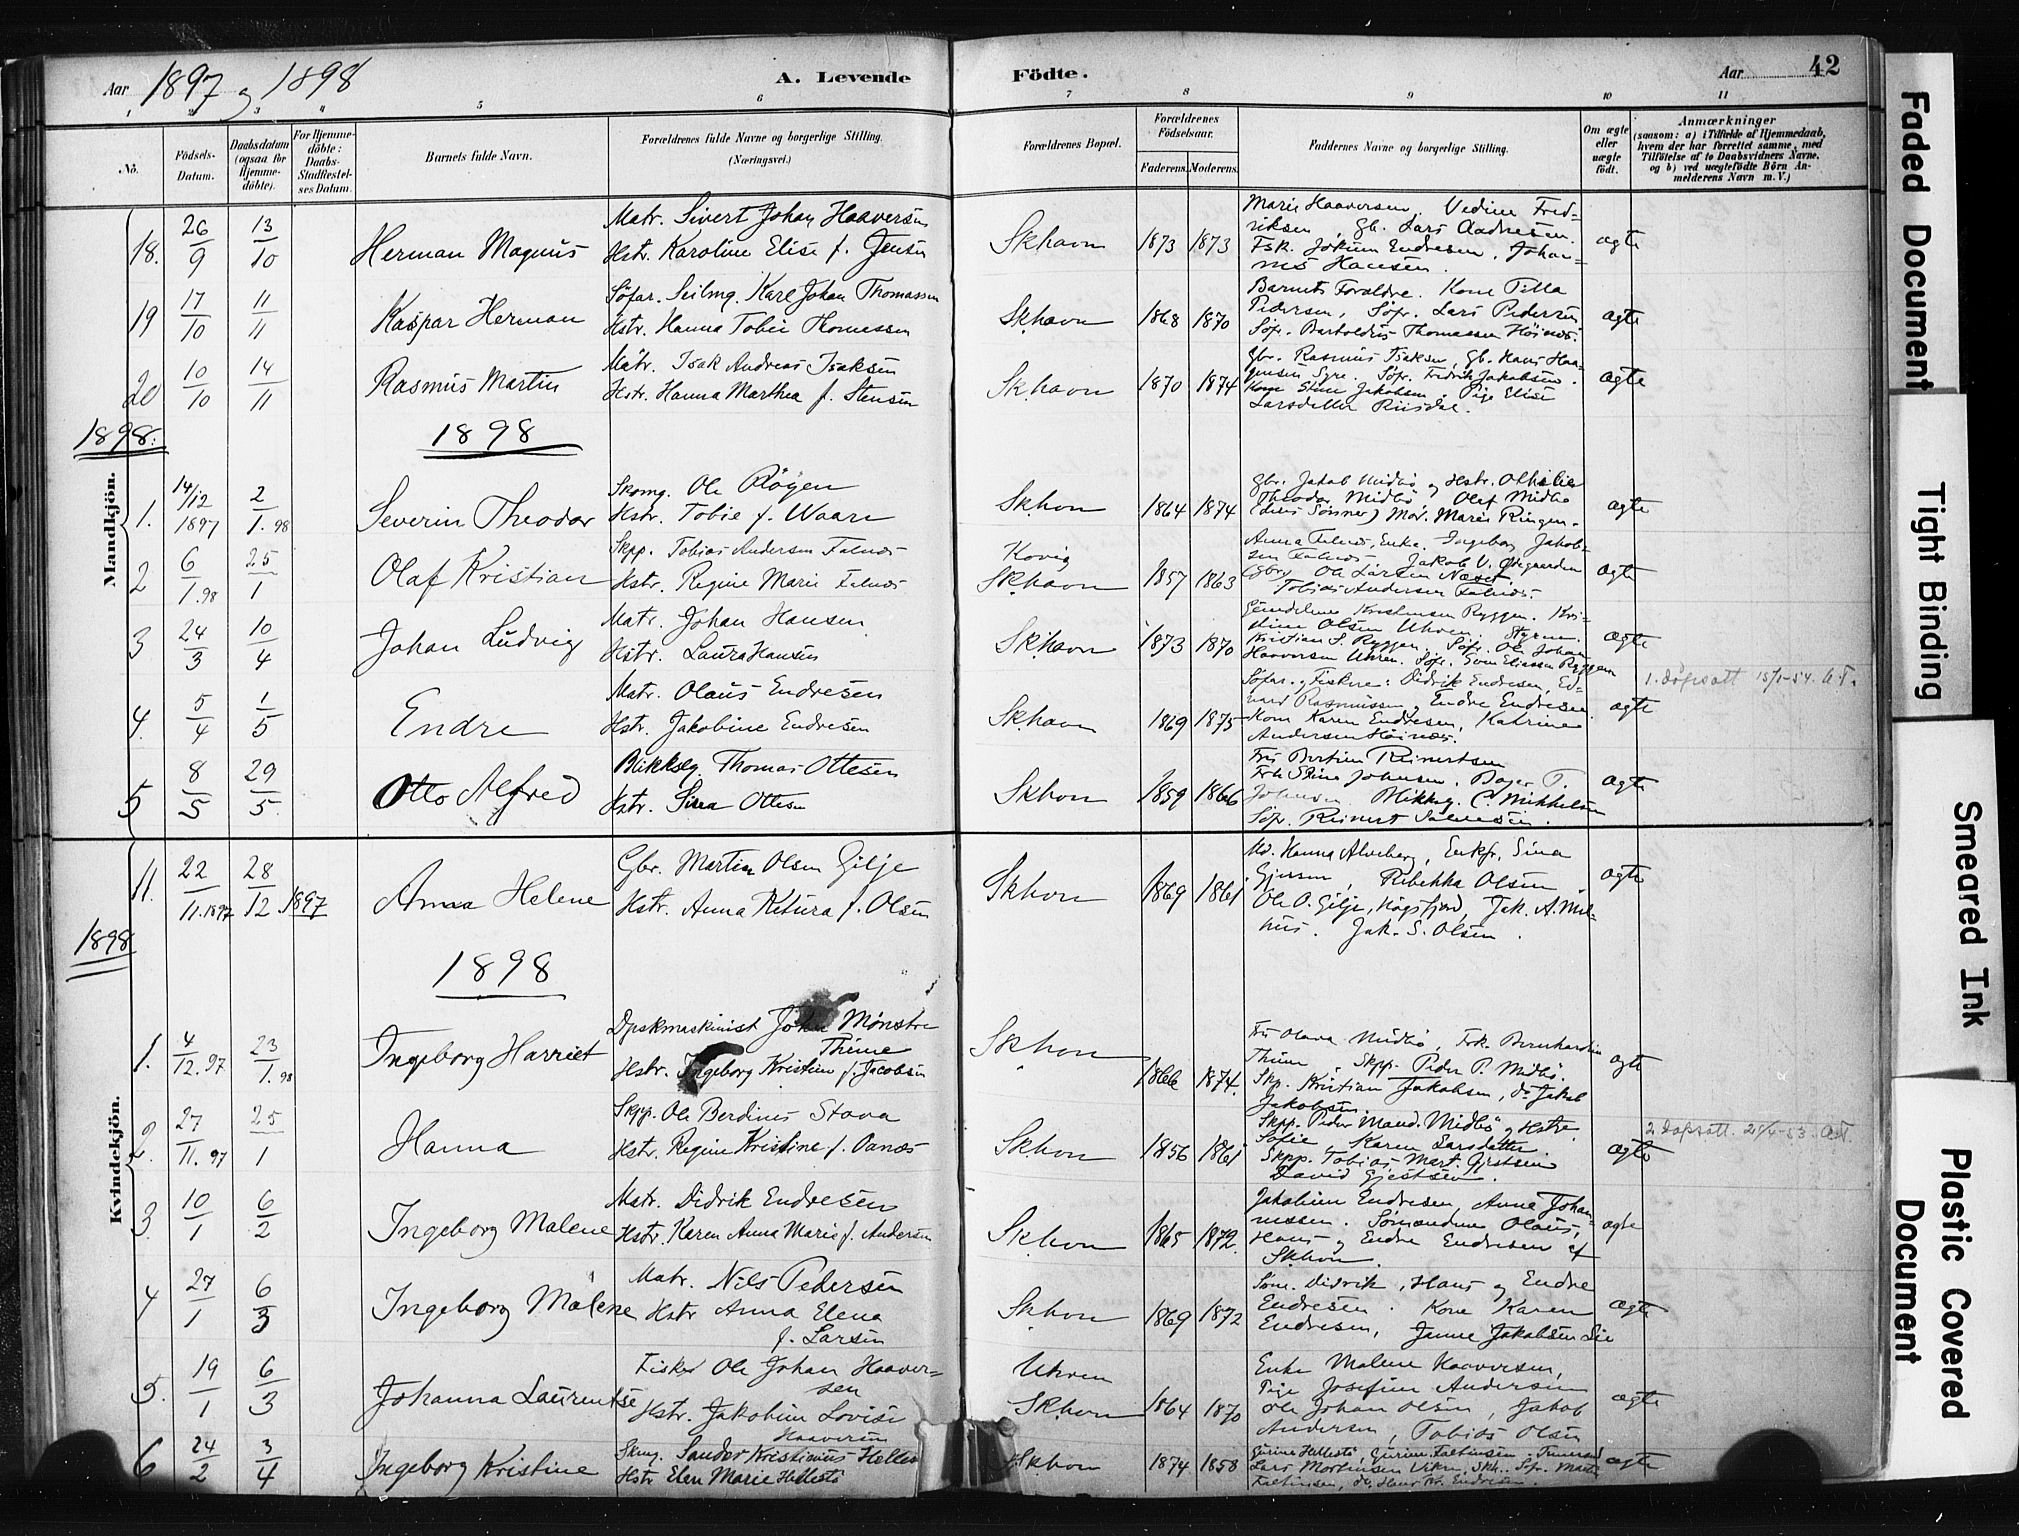 Aar 1897 og 1898 A. Levende Födte. Aar 42
1 2 3 4 5 6 7 8 9 10 11
No.
Födsels-Datum.
Daabsdatum (ogsaa för Hjemme-döbte).
For Hjemme-döbte: Daabs-Stadfæstel-ses Datum.
Barnets fulde Navn.
Forældrenes fulde Navne og borgerlige Stilling. (Næringsvei.)
Forældrenes Bopæl.
Forældrenes Födselsaar.
Faderens. Moderens.
Faddernes Navne og borgerlige Stilling.
Om ægte eller uægte födt.
Anmærkninger
(saasom: a) i Tilfælde af Hjemmedaab,
hvem der har forrettet samme, med
Tilföielse af to Daabsvidners Navne,
og b) ved uægtefödte Börn An-
melderens Navn m. V.)
18. 26/9 13/10 Herman Magnus
Matr. Sivert Johan Haaversen
Hstr. Karoline Elise f. Jensen
Skhavn 1873 1873
Marie Haaversen, Vedine Fred-
riksen, Gb. Lars Aadnesen.
Fsk. Jokum Endresen, Johan-
nes Hansen.
ægte
19 17/10 11/11 Kaspar Herman
Söfar. Seilmg. Karl Johan Thomassen
Hstr. Hanna Tobie Thomassen
Skhavn 1868 1870
Barnets Forældre. Kone Tilla
Pedersen, Söfr. Lars Pedersen
Söfr. Bartholdus Thomassen Höinæs.
ægte
20 10/10 14/11 Rasmus Martin
Matr. Isak Andreas Isaksen
Hstr. Hanna Marthea f. Stensen
Skhavn 1870 1874
Gbr. Rasmus Isaksen, Gb. Hans Haa-
gensen Syre. Söfr. Fredrik Jakobsen.
Kone Stine Jakobsen. Pige Elise
Larsdatter Riisdal.
ægte
1898. 1898
Mandkjön.
1. 14/12 1897 2/1.98 Severin Theodor
Skomg. Ole Röyen
Hstr. Tobie f. Waare
Skhvn 1864 1874
Gbr. Jakob Midbö og Hstr. Othilie
Theodor Midbö Olaf Midbö
ægte
2 6/1.98 25/1 Olaf Kristian
Skpp. Tobias Andersen Falnæs
Hstr. Regine Marie Falnæs
Kovig
Skhavn 1857 1863
Anna Falnæs, Enke. Ingeborg Jakob-
sen Falnæs Jakob V. Ødegaarden
Gbr. Ole Larsen Næset
Tobias Andersen Falnæs.
ægte
3 24/3 10/4 Johan Ludvig
Matr. Johan Hansen
Hstr. Laura Hansen
Skhavn 1873 1870
Kristensen Ryggen. Kri-
stine Olsen Uhren. Styrm.
Kristian S. Ryggen, Söfr. Ole Johan
Haaversen Uhren. Söfr. Sven Eliassen Ryggen
ægte
4. 5/4 1/5 Endre
Matr. Olaus Endresen
Hstr. Jakobine Endresen
Skhavn 1869 1875
Söfar. og Fiskere: Didrik Endresen, Ed-
vard Rasmussen, Endre Endresen
Kone Karen Endresen, Katrine
Andersen Höinæs.
ægte
1. Döpsatt 15/1-54. A.T.
5 8/5 29/5. Otto Alfred
Blikkslg. Thomas Ottesen
Hstr. Sina Ottesen
Skhvn 1859 1866
Fru Bertine Reinertsen
Frk Stine Johnsen. Bager T.
Johnsen. Mikkel C. Mikkelsen
Söfr. Reinert Salvesen.
ægte
11. 22/11.1897 28/12 1897 Anna Helene
Gbr. Martin Olsen Gilje
Hstr. Anna Ketura f. Olsen
Skhvn 1869 1861
Md. Hanna Alveberg, Enkfr. Sina
Gjersen, Rebekka Olsen.
Ole O. Gilje, Högsfjord, Jak. A. Mel-
hus. Jak. S. Olsen.
ægte
1898 1898
Kvindekjön.
1. 4/12.97 23/1.98 Ingeborg Harriet
Dpskmaskinist Johan Mønster
Thime
Hstr. Ingeborg Kristine f. Jacobsen
Skhvn 1866 1874.
Fru Olava Midbö, Frk. Bernhardine
Thime, Skpp. Peder P. Midbö.
Skp. Kristian Jakobsen, do Jakob
Jakobsen.
ægte
2. 27/11.97 25/1 Hanna
Skpp. Ole Berdines Stava
Hstr. Regine Kristine f. Oanæs
Skhvn 1856 1861
Skpp. Peder Maud. Midbö og Hstr.
Sofie, Karen Larsdatter
Skpp. Tobias Mart. Gjestsen
David Gjestsen.
ægte
2. Döpsatt. 21/4-53. A.T.
3. 10/1 6/2 Ingeborg Malene
Matr. Didrik Endresen
Hstr. Karen Anna Marie f. Andersen
Skhvn 1865 1872.
Jakobine Endresen, Anne Johan-
nessen. Sömændene Olaus,
Hans og Endre Endresen af
Skhvn.
ægte
4 27/1 6/3 Ingeborg Malene
Matr. Nils Pedersen
Hstr Anna Elena
f. Larsen
Skhvn 1869 1872
Söm. Didrik, Hans og Endre
Endresen. Kone Karen
Endresen, Janne Jakobsen Lie
ægte
5. 19/1 6/3 Johanna Laurentse
Fisker Ole Johan Haaver-
sen
Hstr. Jakobine Lovise
Haaversen
Uhren
Skhvn 1864 1870
Enke Malene Haaversen,
Pige Josefine Andersen
Ole Johan Olsen, Jakob
Andersen, Tobias Olsen
ægte
6 24/2 3/4 Ingeborg Kristine
Skmg. Sander Kristianus Hellestö
Hstr Elen Marie Hellestö
Skhvn 1874 1858
Gurine Hellestö, Gurine Faltinsen.
Lars Mortensen Viken, Skh. Sfr. Martin
Faltinsen, do Hans Kr. Endresen.
ægte
Faded Document
Tight Binding
Smeared Ink
Plastic Covered
Document